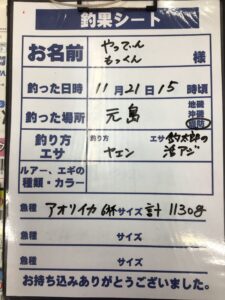 釣果シート
お名前 やってぃん もっくん 様
釣った日時 11月21日15時頃
釣った場所 元島 地磯 沖磯 堤防
釣り方 エサ 釣り方 ヤエン エサ 釣太郎の活アジ
ルアー、エギの種類・カラー
魚種 アオリイカ 6杯 サイズ 計1130g
魚種 サイズ
魚種 サイズ
お持ち込みありがとうございました。